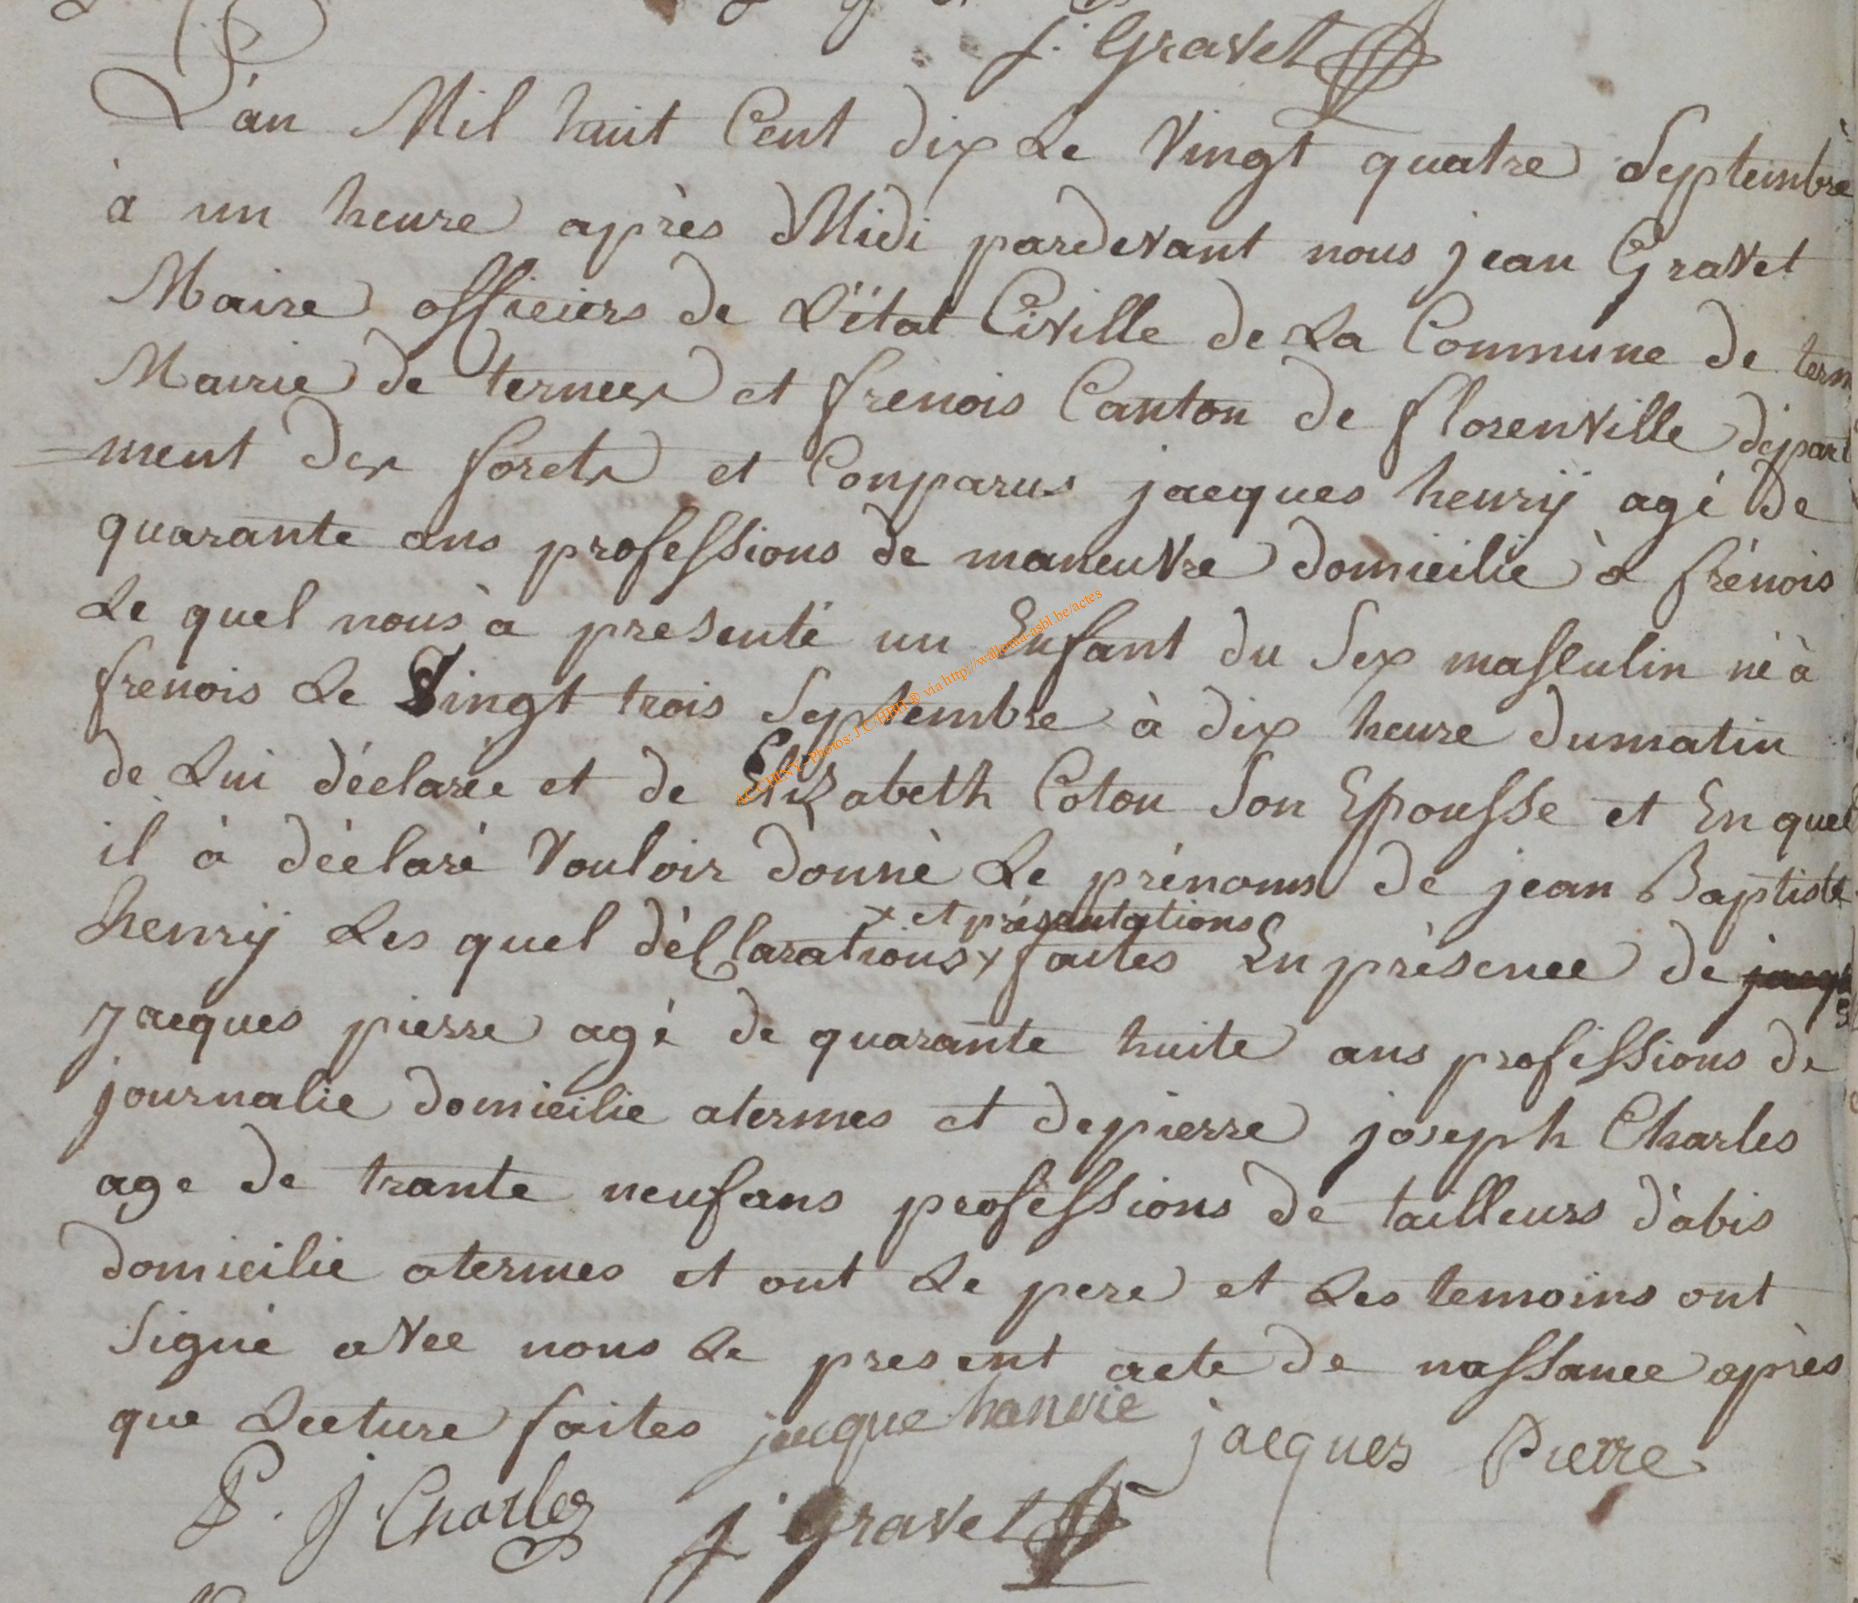 j. Gravet
L'an Mil huit Cent dix Le Vingt quatre Septembre
à un heure après Midi pardevant nous jean Gravet
Maire officiers de L'état Civille de La Commune de term
Mairie de termes et frenois Canton de florenville départ
ment des forets et Comparus jacques henrÿ agé de
quarante ans professions de maneuvre domicilié à frénois
Le quel nous à presenté un Enfant du Sex masculin né à
frenois Le Vingt trois Septembre à dix heure dumatin
de Lui déclarée et de Elizabeth Coton Son Epousse et En quel
il à déclaré Vouloir donné Le prénoms de jean Baptiste
× et présentations
henrÿ Les quel déClarations × faites En présence de
jacques pierre agé de quarante huite ans professions de
journalie domicilie atermes et depierre joseph Charles
age de trante neufans professions de tailleurs d'abis
domicilie atermes et ont Le pere et Les temoins ont
Signé avec nous Le present acte de nassance après
que Lecture faites jacque hanrie jacques Pierre
P. J Charles j Gravet
ACCHENY - Photos: J.C. via http://wallonia-asbl.be/actes